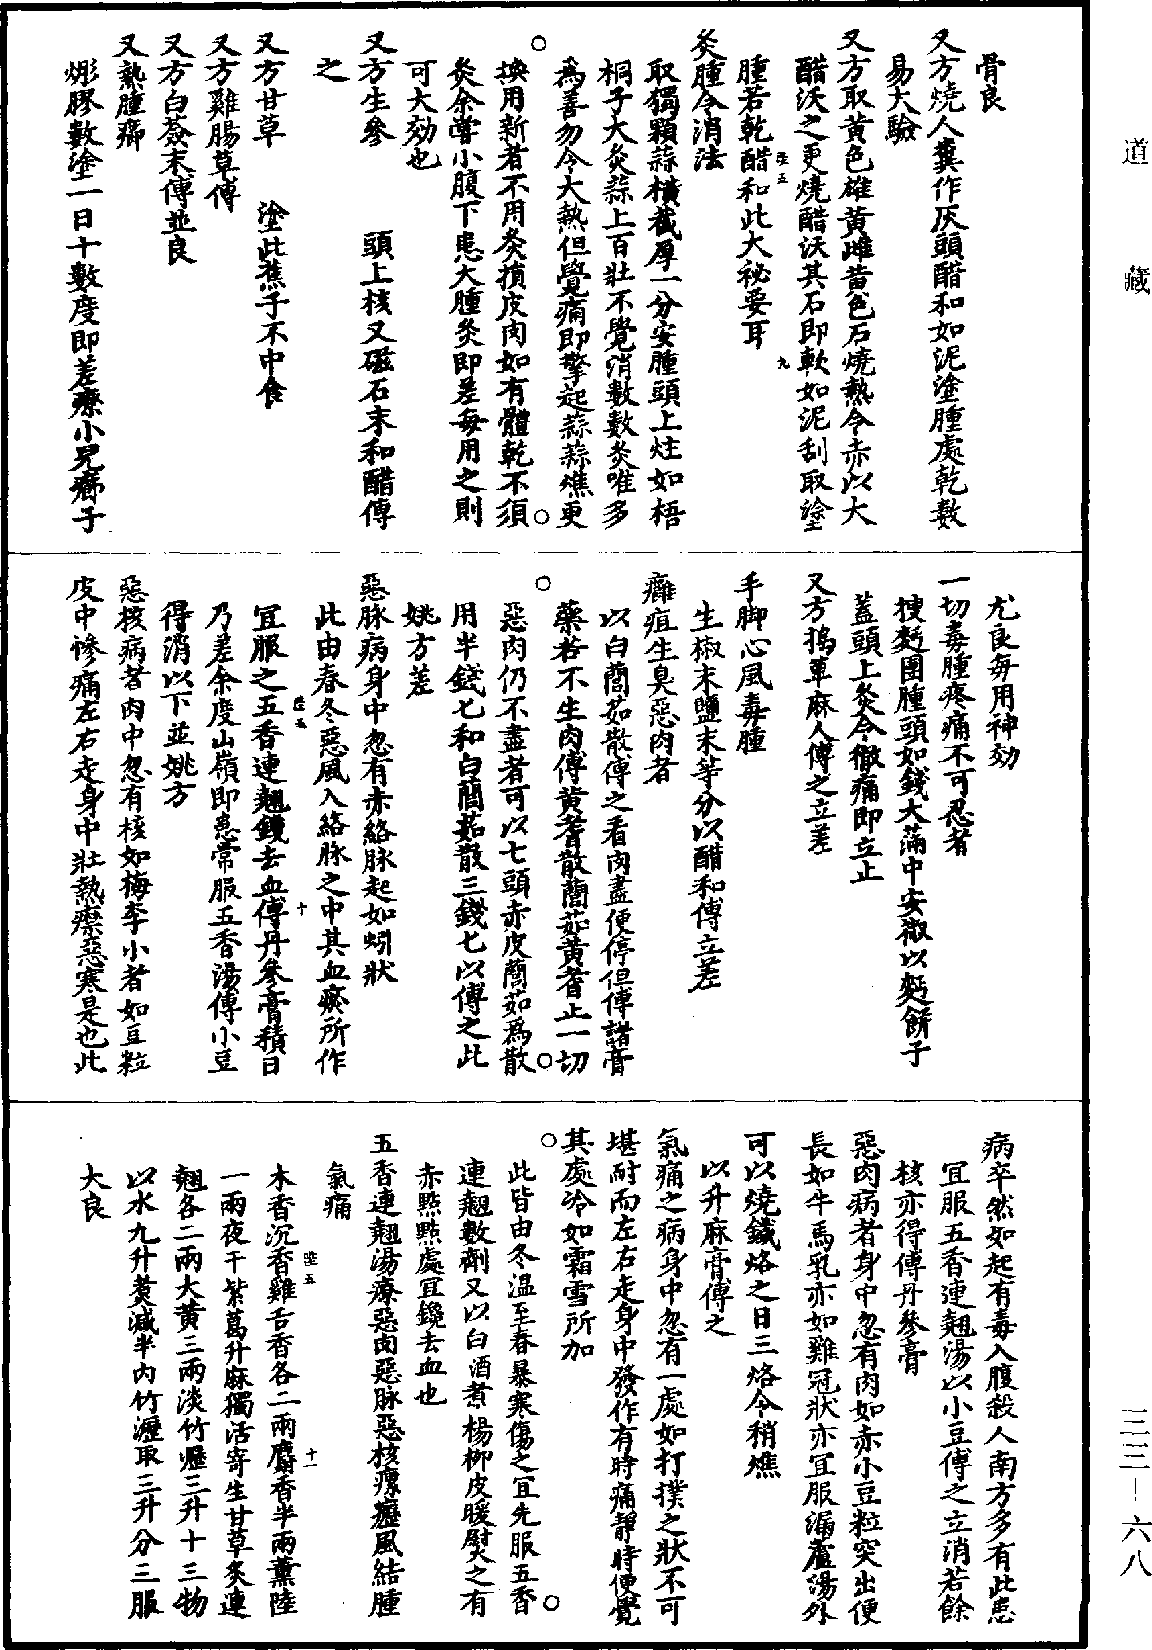 道藏
三三－六八
骨良
又方燒人糞作灰頭醋和如泥塗腫處乾數
易大驗
又方取黃色雄黃雌黃色石燒熱令赤以大
醋沃之更燒醋沃其石即軟如泥刮取塗
腫若乾醋和此大祕要耳
灸腫令消法
取獨顆蒜橫截厚一分安腫頭上炷如梧
桐子大灸蒜上百壯不覺消數數灸唯多
為善勿令大熱但覺痛即擎起蒜蒜燋更
換用新者不用灸損皮肉如有體乾不須
灸余嘗小腹下患大腫灸即差每用之則
可大効也
又方生參 頭上核又磁石末和醋傅
之
又方甘草 塗此蕉子不中食
又方雞腸草傅
又方白蘞末傅並良
又熱腫癤
㷟膠數塗一日十數度即差療小兒癤子
尤良每用神効
一切毒腫疼痛不可忍者
搜麪團腫頭如錢大滿中安椒以麪餅子
蓋頭上灸令徹痛即立止
又方搗萆麻人傅之立差
手脚心風毒腫
生椒末鹽末等分以醋和傅立差
癰疽生臭惡肉者
以白䕡茹散傅之看肉盡便停但傅諸膏
藥若不生肉傅黃耆散䕡茹黃耆止一切
惡肉仍不盡者可以七頭赤皮䕡茹為散
用半錢匕和白䕡茹散三錢匕以傅之此
姚方差
惡脉病身中忽有赤絡脉起如蚓狀
此由春冬惡風入絡脉之中其血瘀所作
宜服之五香連翹鑱去血傅丹參膏積日
乃差余度山嶺即患常服五香湯傅小豆
得消以下並姚方
惡核病者肉中忽有核如梅李小者如豆粒
皮中慘痛左右走身中壯熱瘝惡寒是也此
病卒然如起有毒入腹殺人南方多有此患
宜服五香連翹湯以小豆傅之立消若餘
核亦得傅丹參膏
惡肉病者身中忽有肉如赤小豆粒突出便
長如牛馬乳亦如雞冠狀亦宜服漏蘆湯外
可以燒鐵烙之日三烙令稍燋
以升麻膏傅之
氣痛之病身中忽有一處如打撲之狀不可
堪耐而左右走身中發作有時痛靜時便覺
其處冷如霜雪所加
此皆由冬溫至春暴寒傷之宜先服五香
連翹數劑又以白酒煮楊柳皮暖熨之有
赤㸃㸃處宜鑱去血也
五香連翹湯療惡肉惡脉惡核瘰癧風結腫
氣痛
木香沉香雞舌香各二兩麝香半兩薰陸
一兩夜干紫葛升麻獨活寄生甘草炙連
翹各二兩大黃三兩淡竹瀝三升十三物
以水九升煮減半內竹瀝取三升分三服
大良